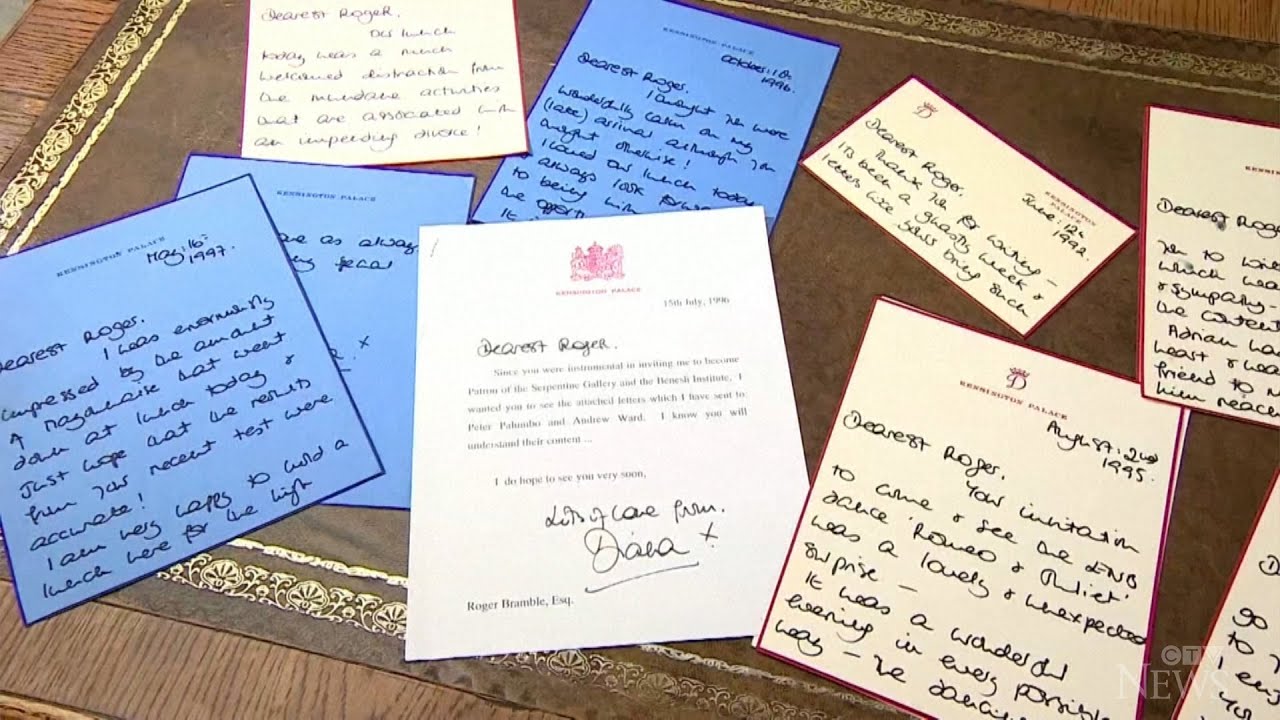 Dearest Roger.
Our lunch
today was a much
welcomed distraction from
the mundane activities
that are associated with
an impending divorce!
KENSINGTON PALACE
October: 1
1996.
Dearest Roger.
I thought you were
wonderfully calm on my
(late) arrival although you
might otherwise!
I loved our lunch today
always look forward
to being with
the opport
It i
KENSINGTON PALACE
as always
KENSINGTON PALACE
May: 16th
1997.
Dearest Roger.
I was enormously
impressed by the amount
of mayonnaise that went
down at lunch today &
just hope that the results
from your recent test were
accurate!
I am very happy to hold a
lunch here for the high
KENSINGTON PALACE
15th July, 1996
Dearest Roger.
Since you were instrumental in inviting me to become
Patron of the Serpentine Gallery and the Benesh Institute, I
wanted you to see the attached letters which I have sent to
Peter Palumbo and Andrew Ward. I know you will
understand their content ...
I do hope to see you very soon,
Lots of love from.
Diana x
Roger Bramble, Esq.
D
KENSINGTON PALACE
June: 12th
1992.
Dearest Roger.
Thank you for writing –
its been a ghastly week &
letters like yours bring such
D
KENSINGTON PALACE
August: 2nd
1995.
Dearest Roger.
Your invitation
to come & see the ENB
dance 'Romeo & Juliet'
was a lovely & unexpected
surprise –
It was a wonderful
evening in every possible
way – the dancing
Dearest Roge
to wri
which wa
& sympathy –
the content
Adrian ha
heart & wa
friend to m
him reac
D
go
to
I en
CTV
NEWS